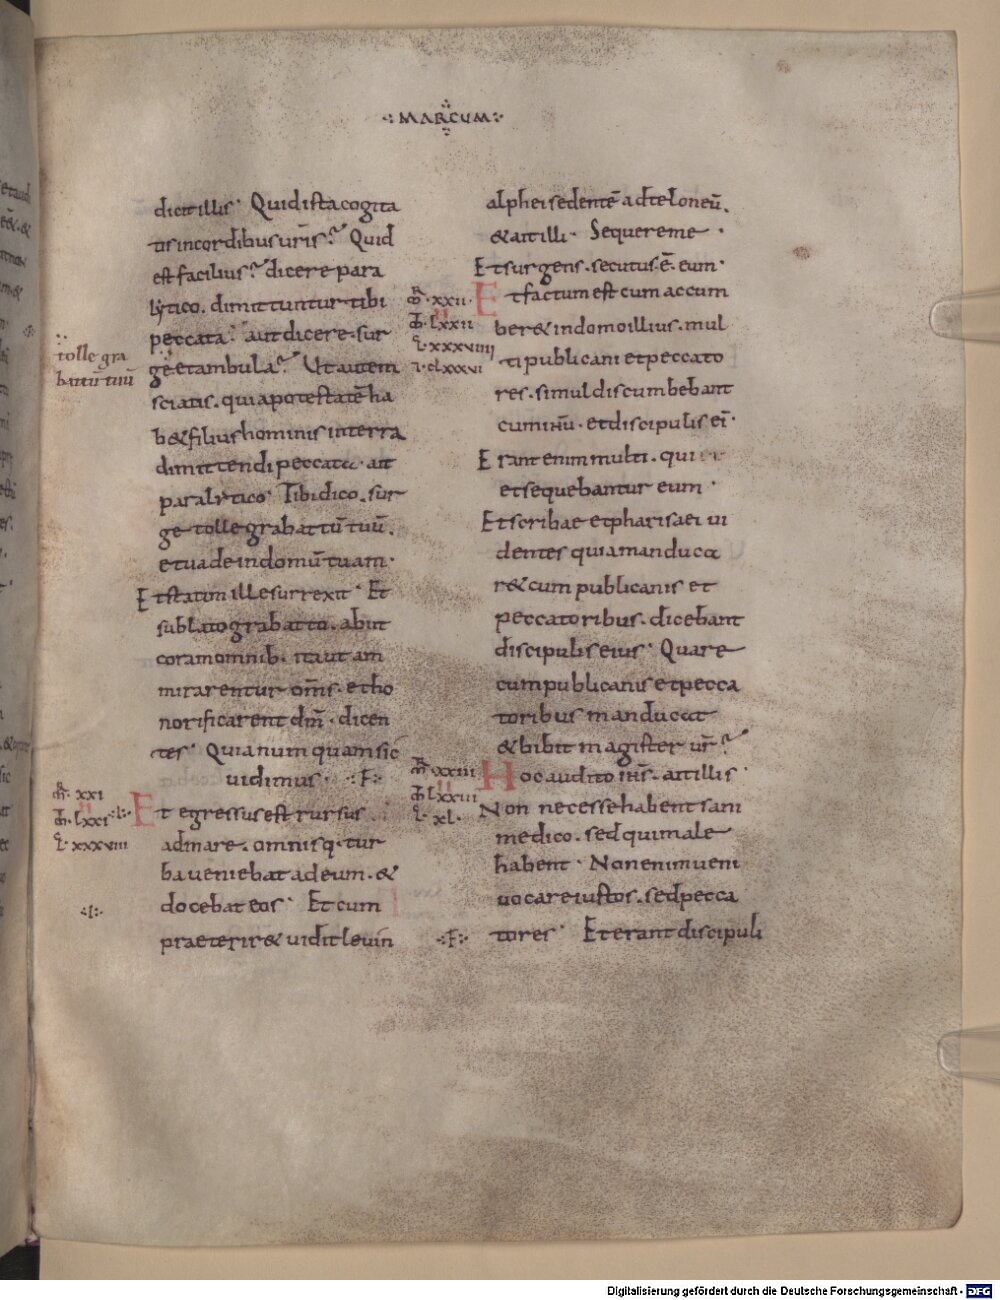 ·: MARCUM :·
dicit illis· Quid ista cogita
tis in cordibus uris? Quid
est facilius? dicere para
lytico. dimittuntur tibi
peccata? aut dicere. sur
ge et ambula? Ut autem
sciatis. quia potestatē ha
b& filius hominis in terra
dimittendi peccata. ait
paralytico· Tibi dico. sur
ge tolle grabattū tuū.
et uade in domū tuam·
Et statim ille surrexit· Et
sublato grabatto. abiit
coram omnib. ita ut am
mirarentur omīs. et ho
norificarent dm̄. dicen
tes· Quia numquam sic
uidimus· ·:F:·
Et egressus est rursus
ad mare. omnisq. tur
ba ueniebat ad eum. &
docebat eos· Et cum
praeterir& uidit leuin
tolle gra
battū tuū
m̄r. xxi
m̄t. lxxi ·:L:·
L. xxxviii
·:I:·
alphei sedentē ad teloneū.
& ait illi· Sequere me·
Et surgens. secutus ē. eum·
Et factum est cum accum
ber& in domo illius. mul
ti publicani et peccato
res. simul discumbebant
cum ihū. et discipulis ei·
Erant enim multi. qui
et sequebantur eum·
Et scribae et pharisaei ui
dentes quia manduca
r& cum publicanis et
peccatoribus. dicebant
discipulis eius· Quare
cum publicanis et pecca
toribus manducat
& bibit magister ur̄?
Hoc audito ih̄s. ait illis·
Non necesse habent sani
medico. sed qui male
habent· Non enim ueni
uocare iustos. sed pecca
tores· Et erant discipuli
m̄r. xxii
m̄t. lxxii
L. xxxviiii
i. clxxxvi
m̄r. xxiii
m̄t. lxxiii
L. xl.
·:F:·
Digitalisierung gefördert durch die Deutsche Forschungsgemeinschaft - DFG